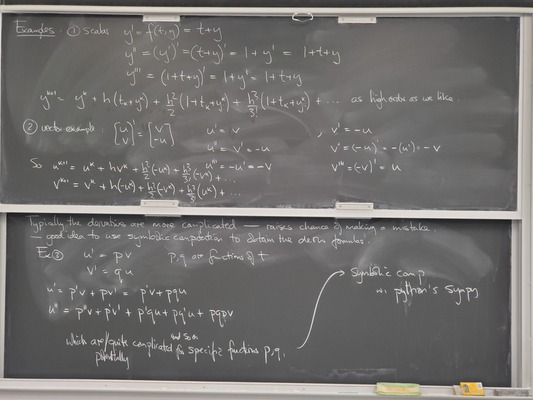 Examples: ① scalar y' = f(t,y) = t+y
y'' = (y')' = (t+y)' = 1+y' = 1+t+y
y''' = (1+t+y)' = 1+y' = 1+t+y
y^{k+1} = y^k + h(t_k+y^k) + h²/2 (1+t_k+y^k) + h³/3! (1+t_k+y^k) + ... as high order as we like.
② vector example: [u v]' = [v -u] u' = v , v' = -u
u'' = v' = -u v'' = (-u)' = -(u)' = -v
So u^{k+1} = u^k + hv^k + h²/2 (-u^k) + h³/3! (-v^k) + ... u''' = -u' = -v v''' = (-v)' = u
v^{k+1} = v^k + h(-u^k) + h²/2 (-v^k) + h³/3! (u^k) + ...
Typically the derivatives are more complicated — raises chance of making a mistake
— good idea to use symbolic computation to obtain the deriv formulas.
Ex③ u' = pv p,q are functions of t
v' = qu
→ symbolic comp
python's Sympy
u'' = p'v + pv' = p'v + pqu
u''' = p''v + p'v' + p'qu + pq'u + pqpv
and so on
which are quite complicated for specific functions p,q.
potentially